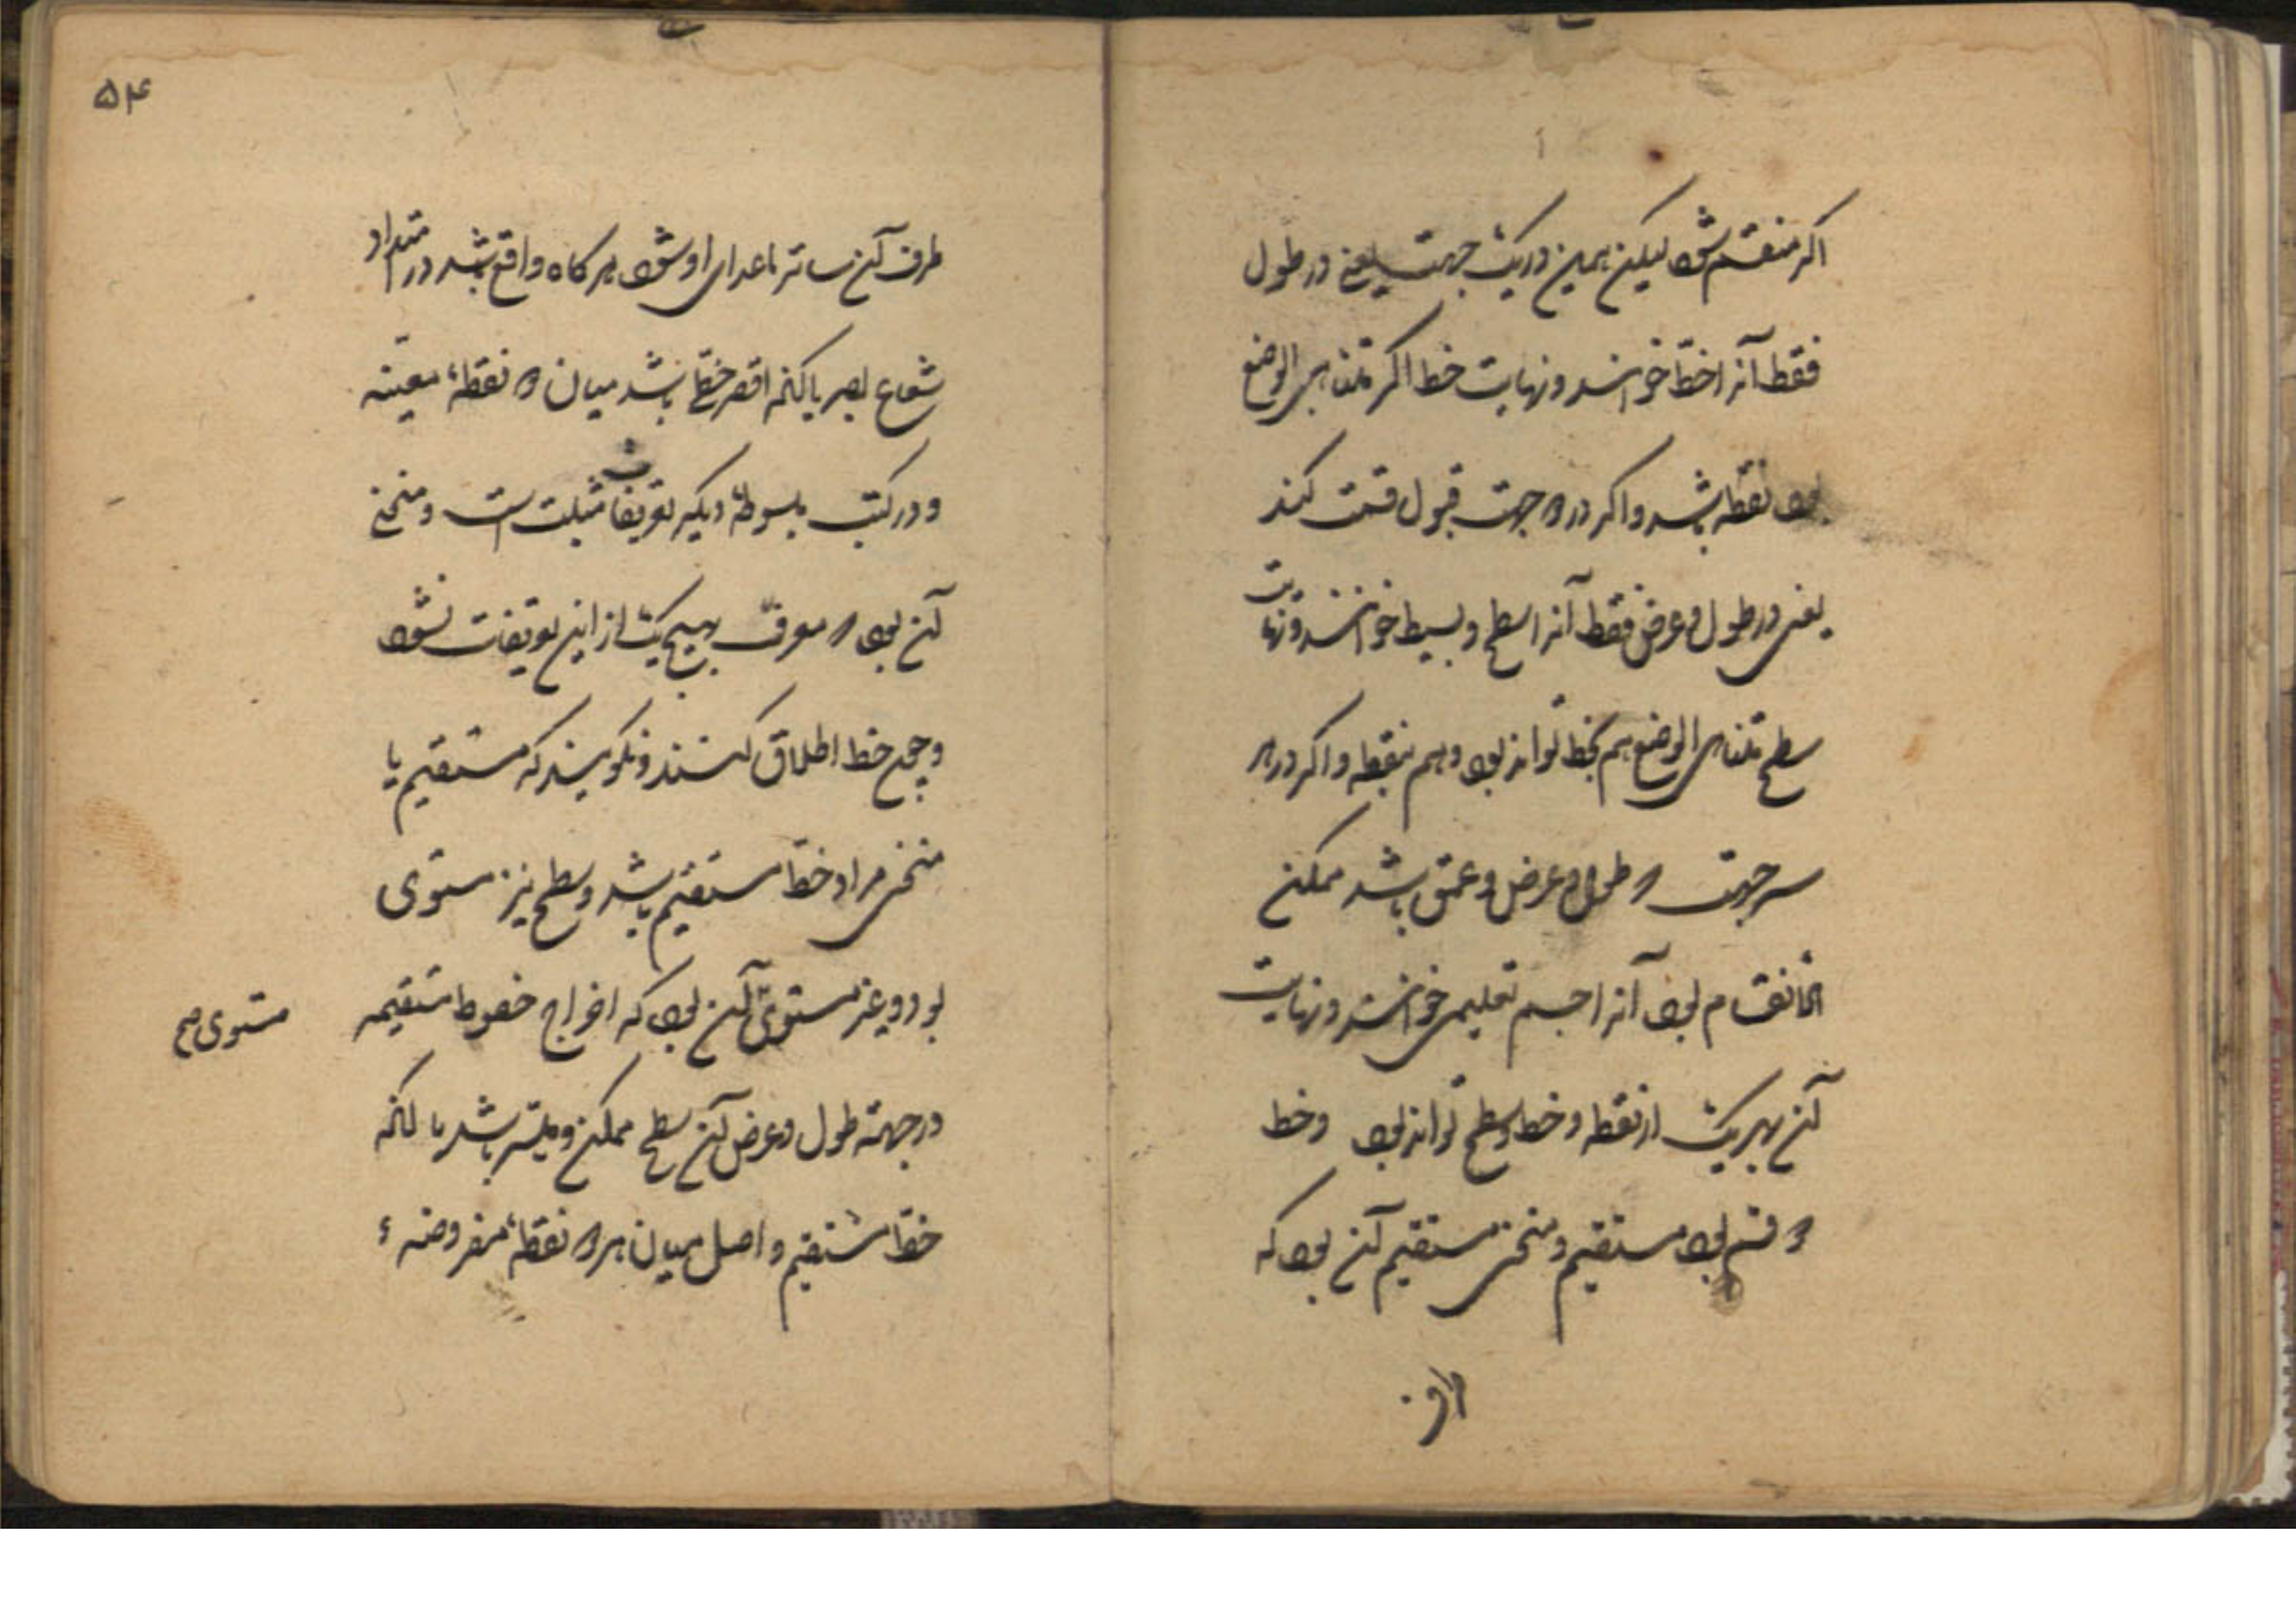 اکر منقسم شود لیکن همین در یک جهت یعنی در طول
فقط آنرا خط خوانند و نهایت خط اکر متناهی الوضع
بود نقطه باشد و اکر در دو جهت قبول قسمت کند
یعنی در طول و عرض فقط آنرا سطح و بسیط خوانند و نهایت
سطح متناهی الوضع هم بخط تواند بود و هم بنقطه و اکر در هر
سه جهت که طول و عرض و عمق باشد ممکن
الانقسام بود آنرا جسم تعلیمی خوانند و نهایت
آن بهر یک از نقطه و خط و سطح تواند بود و خط
دو قسم بود مستقیم و منحنی مستقیم آن بود که
طرف
۵۴
طرف آن ساتر ماعدای او شود هرکاه واقع باشد در امتداد
شعاع بصر یا آنکه اقصر خطی باشد میان دو نقطهٔ معینه
و در کتب مبسوطه دیکر تعریفات مثبت است و منحنی
آن بود که معرف بهیچ یک از این تعریفات نشود
و چون خط اطلاق کنند و نکویند که مستقیم یا
منحنی مراد خط مستقیم باشد و سطح نیز مستوی
بود و غیر مستوی آن بود که اخراج خطوط مستقیمه
مستوی صح
در جهة طول و عرض آن سطح ممکن و میسر باشد یا آنکه
خط مستقیم واصل میان هر دو نقطهٔ مفروضهٔ